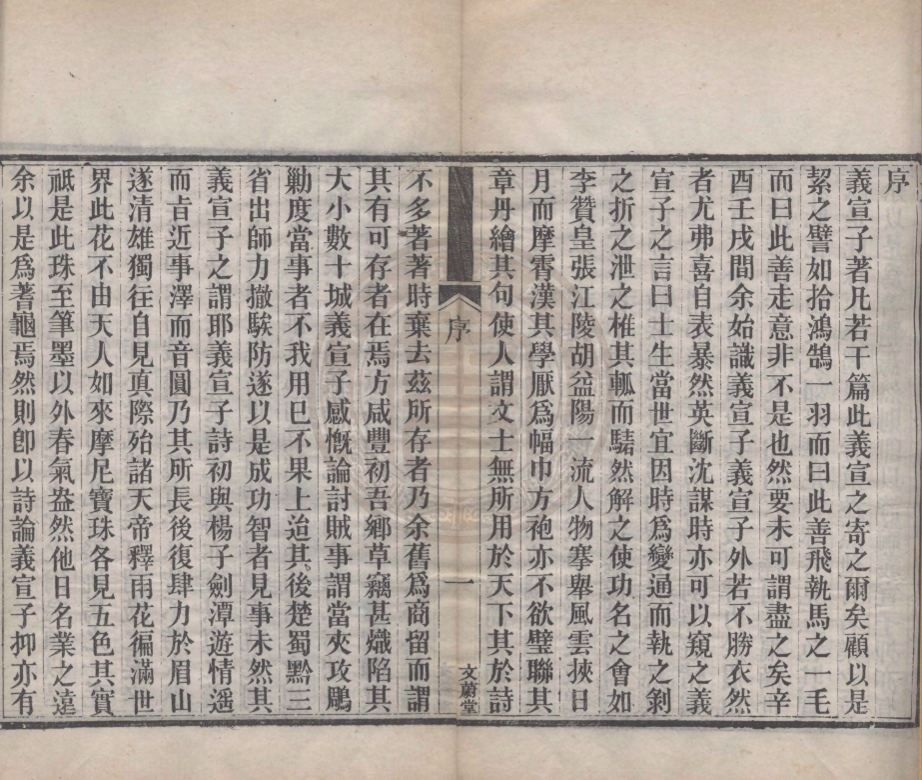 序
義宣子著凡若干篇此義宣之寄之爾矣顧以是
絜之譬如拾鴻鵠一羽而曰此善飛執馬之一毛
而曰此善走意非不是也然要未可謂盡之矣辛
酉壬戌間余始識義宣子義宣子外若不勝衣然
者尤弗喜自表暴然英斷沈謀時亦可以窺之義
宣子之言曰士生當世宜因時爲變通而執之剝
之折之泄之椎其軱而騞然解之使功名之會如
李贊皇張江陵胡益陽一流人物搴舉風雲挾日
月而摩霄漢其學厭爲幅巾方袍亦不欲璧聯其
章丹繪其句使人謂文士無所用於天下其於詩
序
一
文蔚堂
不多著著時棄去茲所存者乃余舊爲商留而謂
其有可存者在焉方咸豐初吾鄉草竊甚熾陷其
大小數十城義宣子感慨論討賊事謂當夾攻鵰
勦度當事者不我用巳不果上迨其後楚蜀黔三
省出師力撤駴防遂以是成功智者見事未然其
義宣子之謂耶義宣子詩初與楊子劍潭遊情遥
而㫖近事澤而音圓乃其所長後復肆力於眉山
遂清雄獨往自見眞際殆諸天帝釋雨花徧滿世
界此花不由天人如來摩尼寶珠各見五色其實
祗是此珠至筆墨以外春氣盎然他日名業之遠
余以是爲蓍龜焉然則卽以詩論義宣子抑亦有